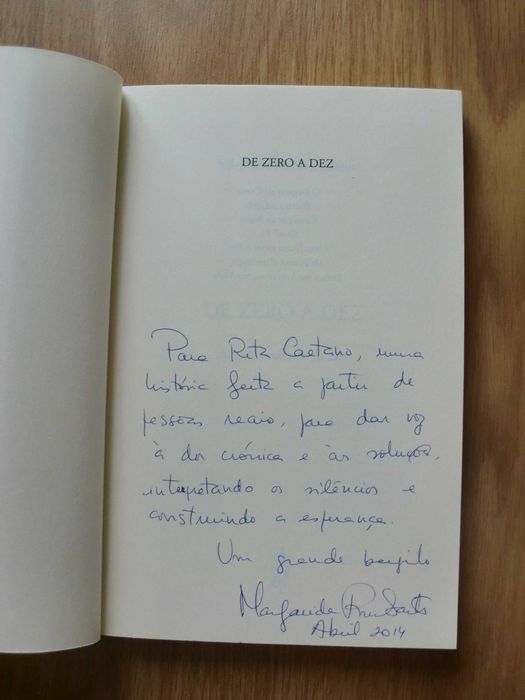 DE ZERO A DEZ
DE ZERO A DEZ
Para Rita Caetano, numa
história feita a partir de
pessoas reais, para dar voz
à dor crónica e às soluções,
interpretando os silêncios e
construindo a esperança.
Um grande beijinho
Margarida
Abril 2014